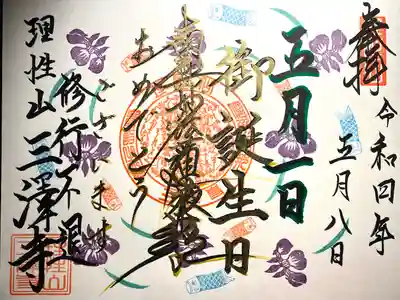 奉拝
令和四年
五月八日
五月一日
御誕生日
南無妙法蓮華経
おめでとう
ございます
修行不退
理性山 三澤寺